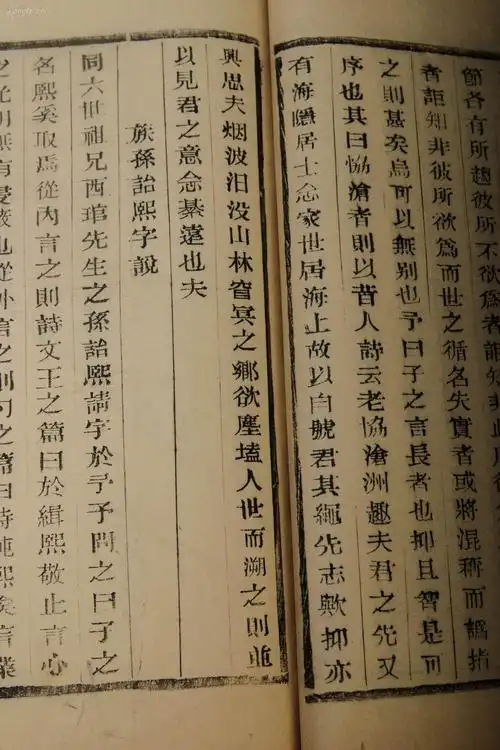 節各有所趨彼所不欲爲者詎知非此所
者詎知非彼所欲爲而世之循名失實者或將混稱而譌指
之則甚矣烏可以無别也予曰子之言長者也抑且智是可
序也其曰恊滄者則以昔人詩云老恊滄洲趣夫君之先又
有海隱居士念家世居海上故以自號君其繩先志歟抑亦
興思夫烟波汨没山林窅冥之鄉欲塵壒人世而溯之則並
以見君之意念綦遠也夫
族孫詒熙字說
同六世祖兄西琯先生之孫詒熙請字於予予問之曰子之
名熙奚取焉從内言之則詩文王之篇曰於緝熙敬止言心
之光明無有侵蔽也從外言之則酌之篇曰時純熙矣言業